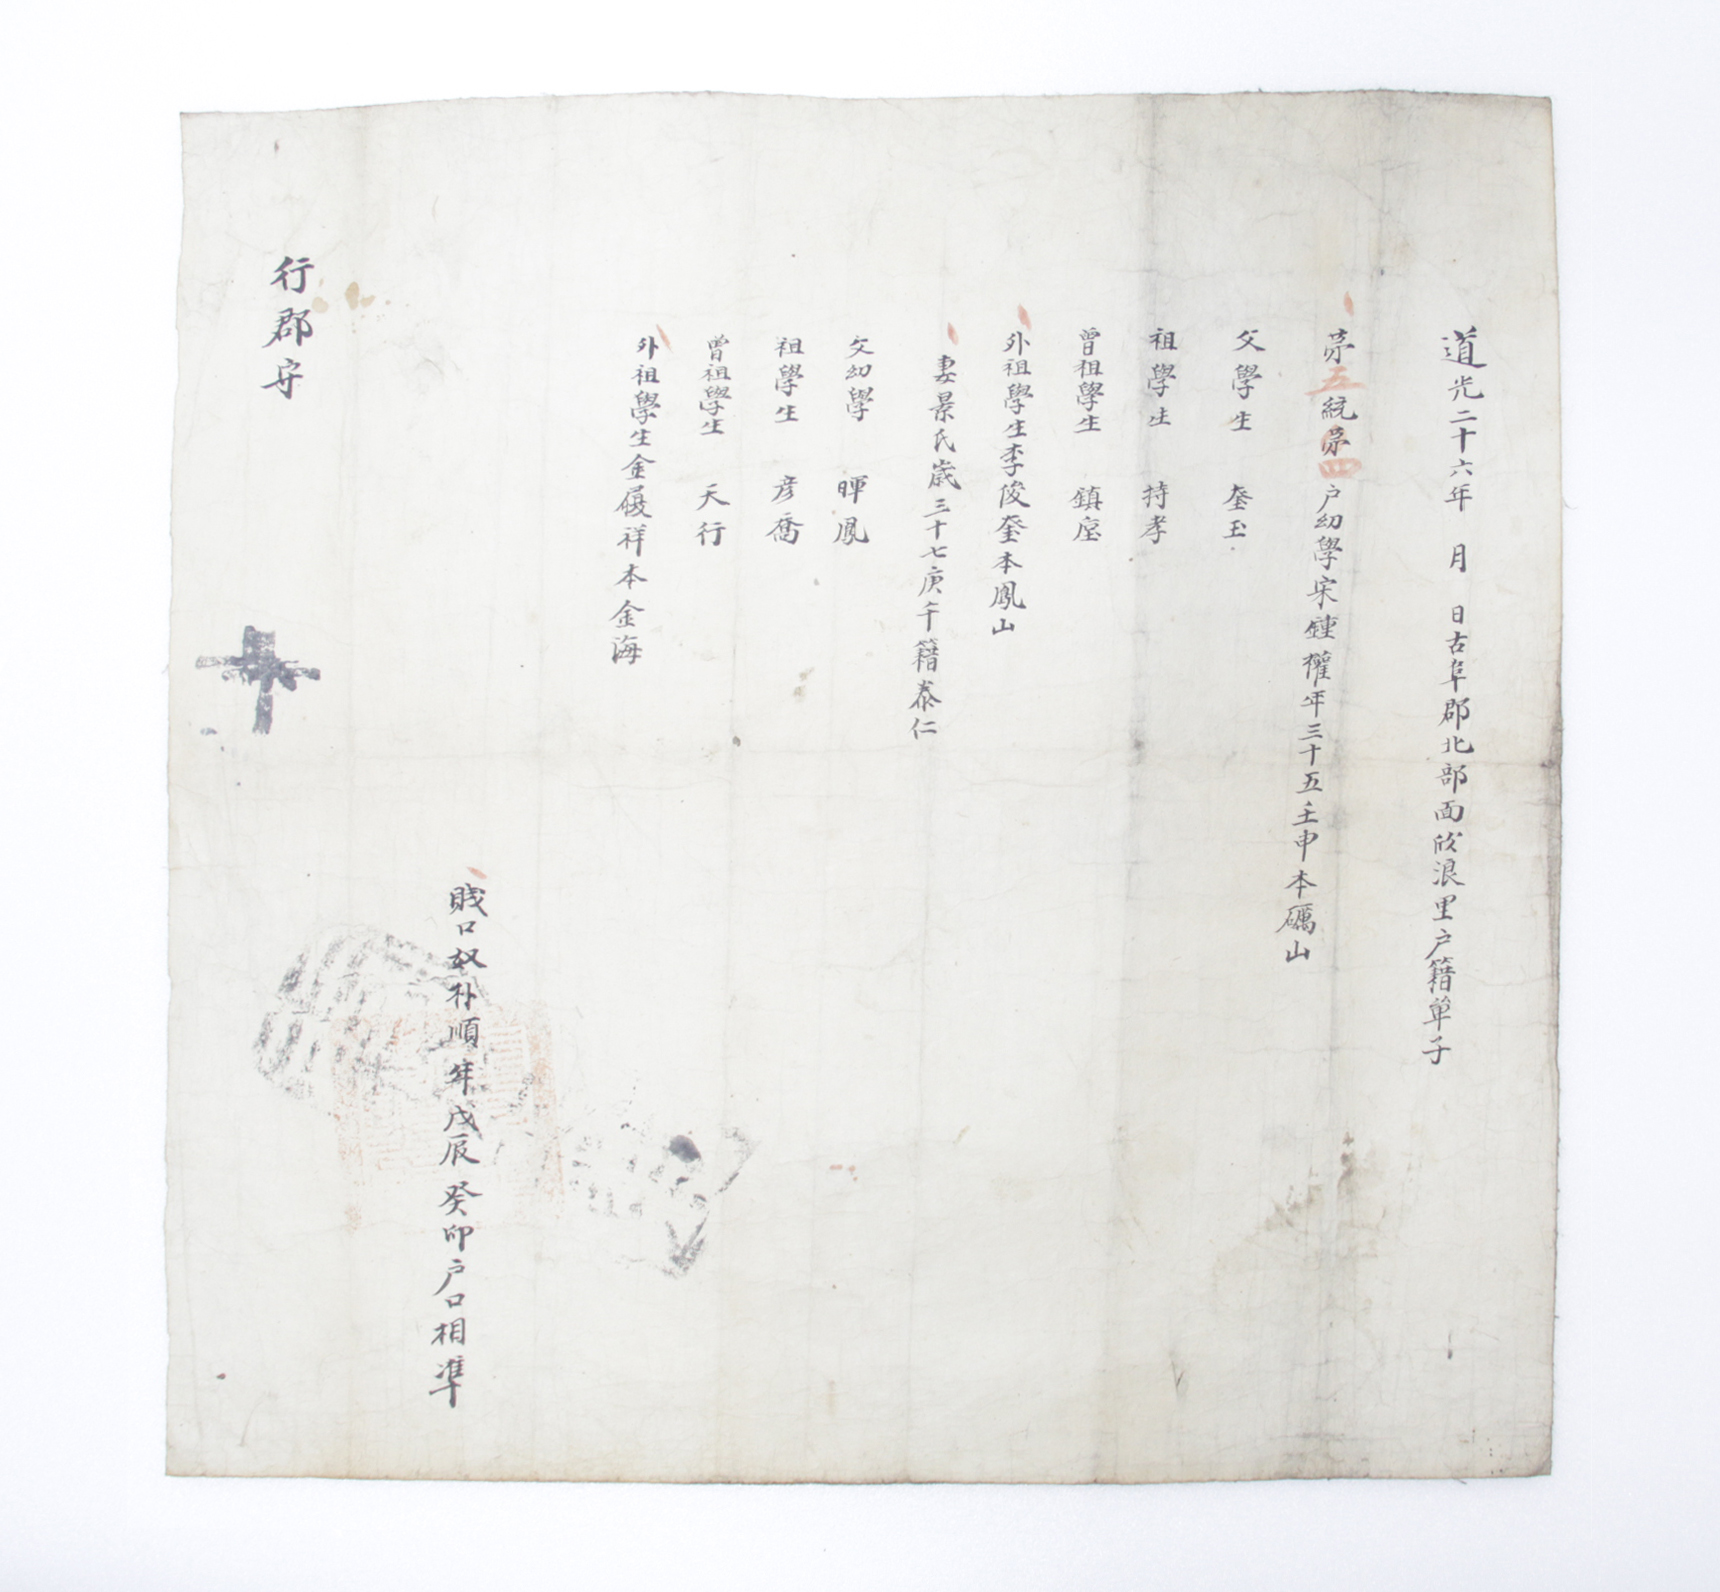 道光二十六年 月 日古阜郡北部面欣浪里戶籍單子
第五統第四戶幼學宋鍾權年三十五壬申本礪山
父學生 奎玉
祖學生 持孝
曾祖學生 鎮
外祖學生李俊奎本鳳山
妻景氏歲三十七庚午籍泰仁
父幼學 暉鳳
祖學生 彦喬
曾祖學生 天行
外祖學生金履祥本金海
賤口奴朴順年戊辰癸卯戶口相準
行郡守